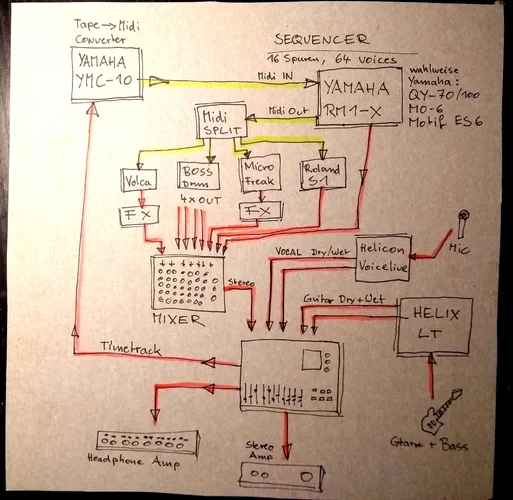 Tape → Midi
Converter
YAMAHA
YMC-10
SEQUENCER
16 Spuren, 64 voices
Midi IN
YAMAHA
RM1-X
wahlweise
Yamaha:
QY-70/100
MO-6
Motif ES6
Midi Out
Midi
SPLIT
Volca
BOSS
Drum
Micro
Freak
Roland
S1
4xOUT
FX
FX
MIXER
Stereo
VOCAL Dry/Wet
Helicon
Voicelive
Mic
Guitar Dry+Wet
HELIX
LT
Timetrack
Gitarre + Bass
Headphone Amp
Stereo
Amp